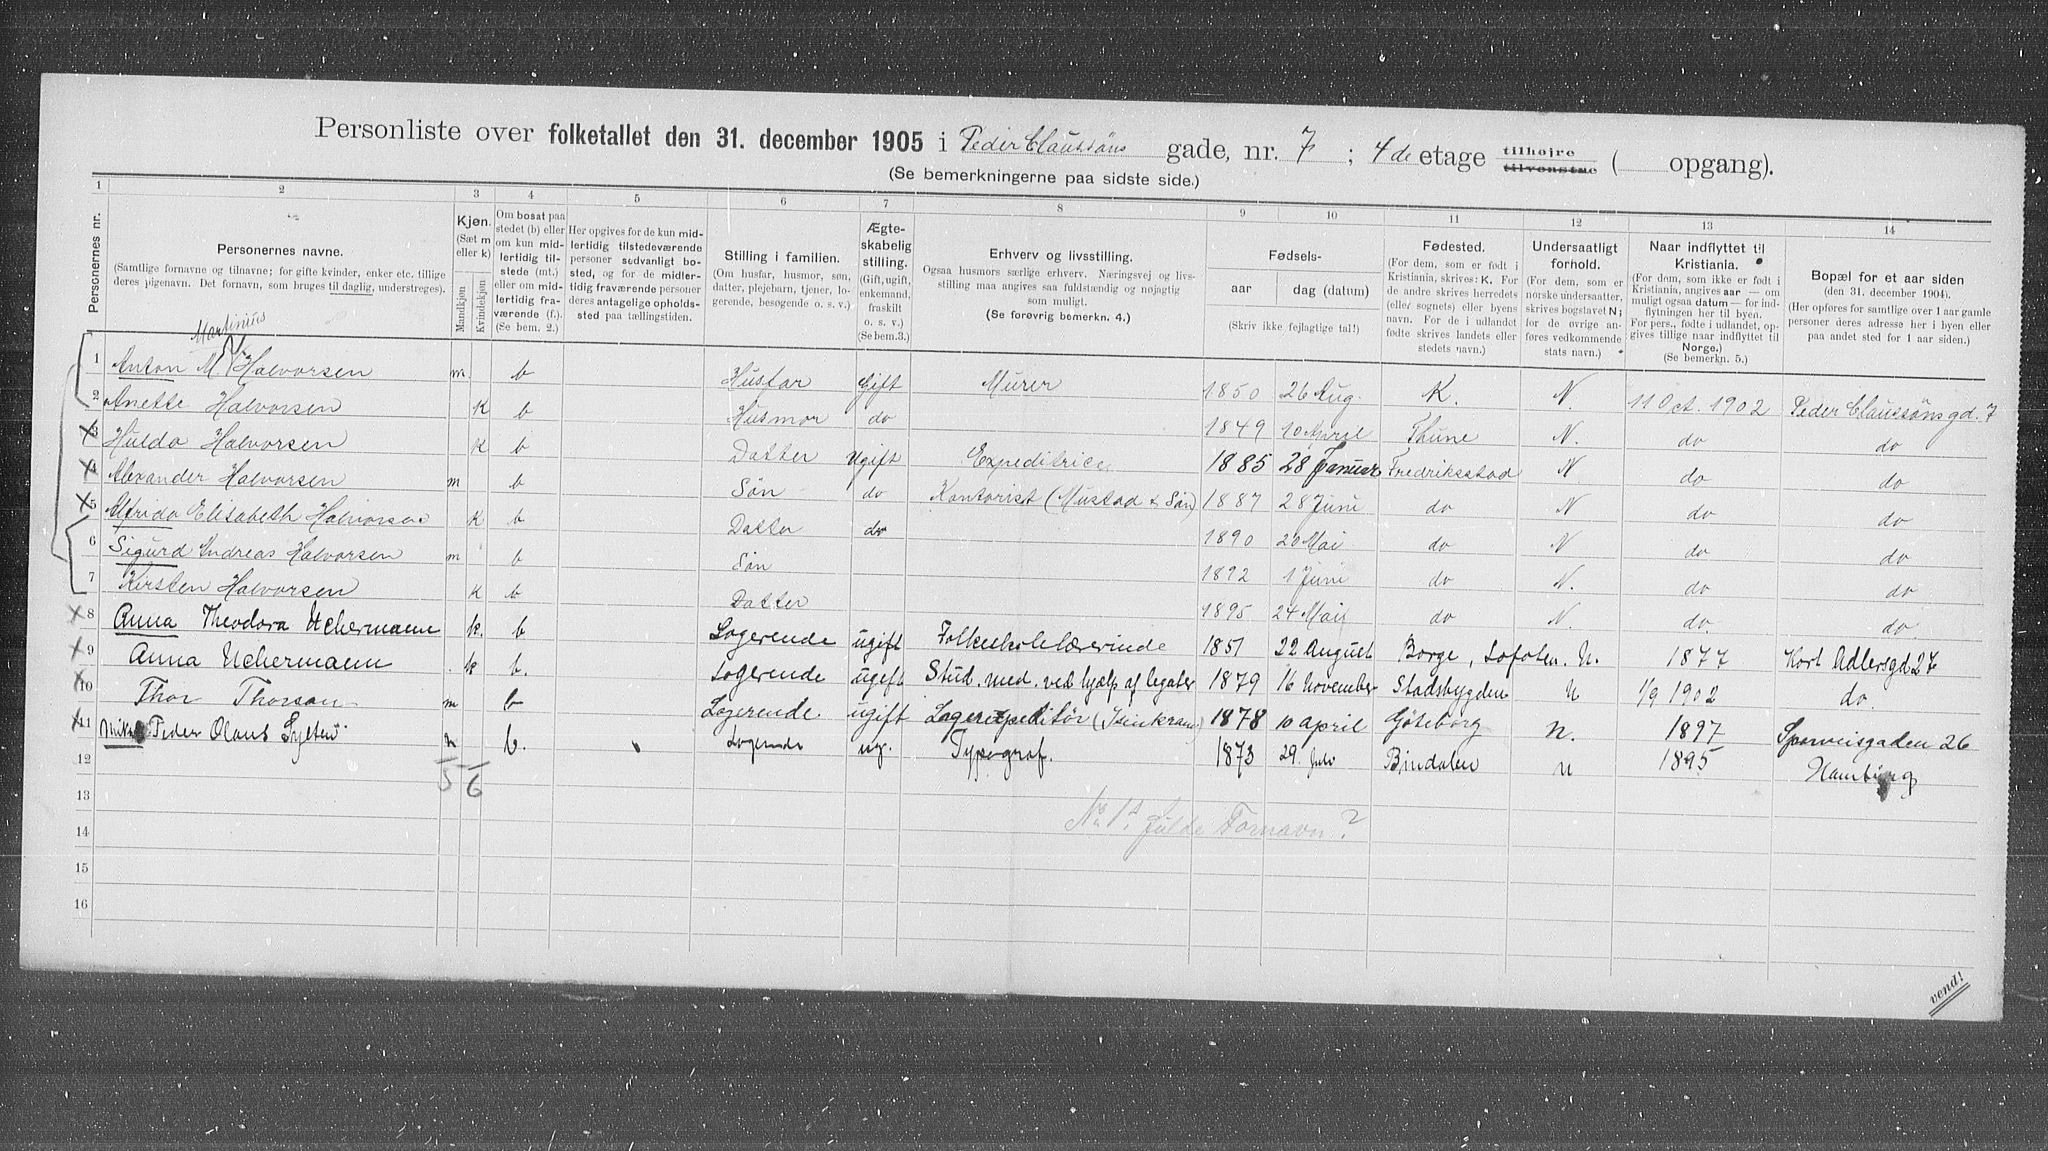 Personliste over folketallet den 31. december 1905 i Peder Claussöns gade, nr. 7 ; 4de etage tilhøjre tilvenstre ( opgang).
(Se bemerkningerne paa sidste side.)
1 2 3 4 5 6 7 8 9 10 11 12 13 14
Personernes nr.
Personernes navne.
(Samtlige fornavne og tilnavne; for gifte kvinder, enker etc. tillige deres pigenavn. Det fornavn, som bruges til daglig, understreges).
Kjøn. (Sæt m eller k) Mandkjøn Kvindekjøn
Om bosat paa stedet (b) eller om kun midlertidig tilstede (mt.) eller om midlertidig fraværende (f.). (Se bem. 2.)
Her opgives for de kun midlertidig tilstedeværende personer sedvanligt bosted, og for de midlertidig fraværende personer deres antagelige opholdssted paa tællingstiden.
Stilling i familien.
(Om husfar, husmor, søn, datter, plejebarn, tjener, logerende, besøgende o. s. v.)
Ægteskabelig stilling. (Gift, ugift, enkemand, fraskilt o. s. v.) (Se bem. 3.)
Erhverv og livsstilling.
Ogsaa husmors særlige erhverv. Næringsvej og livsstilling maa angives saa fuldstændig og nøjagtig som muligt.
(Se forøvrig bemerkn. 4.)
Fødsels-
aar dag (datum)
(Skriv ikke fejlagtige tal!)
Fødested.
(For dem, som er født i Kristiania, skrives: K. For de andre skrives herredets (eller sognets) eller byens navn. For de i udlandet fødte skrives landets eller stedets navn.)
Undersaatligt forhold.
(For dem, som er norske undersaatter, skrives bogstavet N; for de øvrige anføres vedkommende stats navn.)
Naar indflyttet til Kristiania.
(For dem, som ikke er født i Kristiania, angives aar — om muligt ogsaa datum — for indflytningen her til byen. For pers., fødte i udlandet, opgives tillige naar indflyttet til Norge.) (Se bemerkn. 5.)
Bopæl for et aar siden
(den 31. december 1904.)
(Her opføres for samtlige over 1 aar gamle personer deres adresse her i byen eller paa andet sted for 1 aar siden.)
Martinius
1 Anton M Halvorsen m. b Husfar Gift Murer 1850 26 Aug. K. N. 11 Oct. 1902 Peder Claussöns gd. 7
2 Anette Halvorsen K b Husmor do 1849 10 April Thune N. do do
3 Hulda Halvorsen K b Datter Ugift Expeditrice 1885 28 Januar Fredriksstad N do do
4 Alexander Halvorsen m b Søn do Kontorist (Mustad & Søn) 1887 28 Juni do N do do
5 Alfrida Elisabeth Halvorsen K b Datter do 1890 20 Mai do N do do
6 Sigurd Andreas Halvorsen m b Søn 1892 1 Juni do N. do do
7 Kirsten Halvorsen K b Datter 1895 24 Mai do N. do. do.
8 Anna Theodora Uchermann k. b Logerende ugift Folkeskolelærerinde 1851 22 August Borge, Lofoten. N. 1877 Kort Adlersgd 27
9 Anna Uchermann k b. Logerende ugift Stud. med. ved hjælp af legater 1879 16 November Stadsbygden N 1/9 1902 do.
10 Thor Thorson m b Logerende ugift Lagerexpeditör 1878 10 april Göteborg N. 1897 Sporveisgaden 26
11 Peder Olaus b. Logerende ug. Typograf. 1873 29. Juli Bindalen N 1895 Hamburg
12 5 6
13 No 1s fulde Fornavn?
14
15
16
vend!